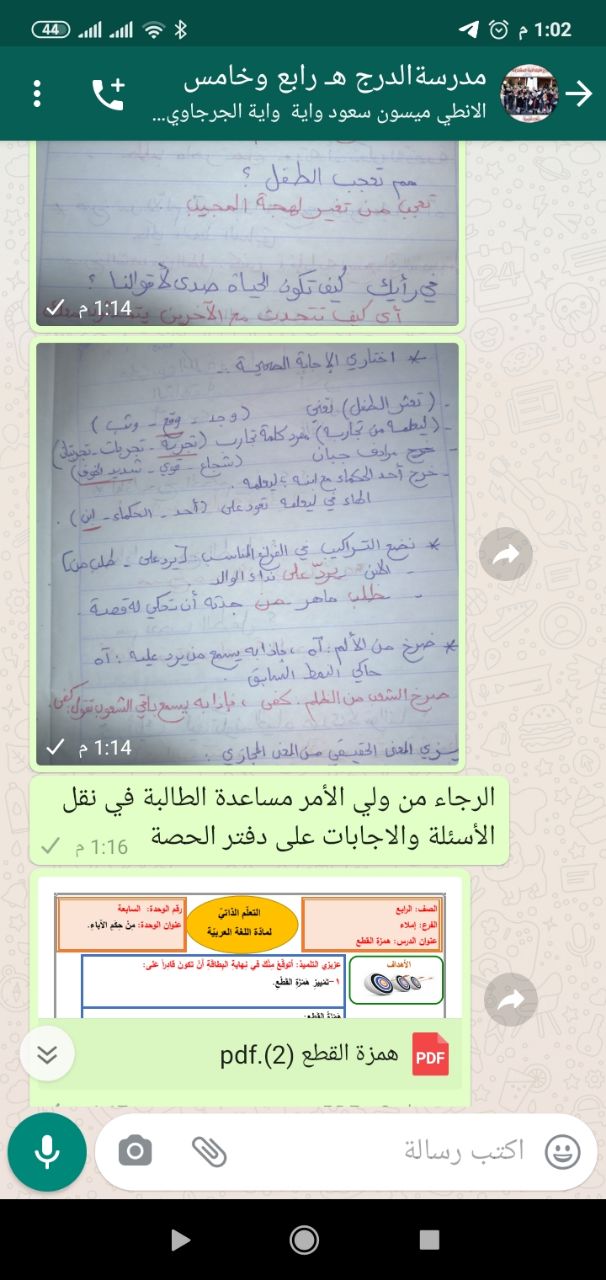 1:02 م
44
مدرسةالدرج هـ رابع وخامس
الانطي ميسون سعود واية واية الجرجاوي...
مم تعجب الطفل ؟
تعجب من تغير لهجة المجيب
في رأيك كيف تكون الحياة صدى لأقوالنا ؟
أي كيف نتحدث مع الآخرين
1:14 م
* اختاري الإجابة الصحيحة :
- ( تعثر الطفل ) تعني ( وجد - وقع - وثب )
- ( ليعلمه من تجاربه ) مفرد كلمة تجارب ( تجربة - تجريات - تجربتان )
مرادف جبان ( شجاع - قوي - شديد الخوف )
- خرج أحد الحكماء مع ابنه ؛ ليعلمه .
الهاء في ليعلمه تعود على ( أحد - الحكماء - ابن ) .
* نضع التراكيب في الفراغ المناسب : [ يرد على - طلب من ]
- الابن يردّ على نداء الوالد
- طلب ماهر من جدته أن تحكي له قصة .
* صرخ من الألم : آه ، فإذا به يسمع من يرد عليه : آه
حاكي النمط السابق
صرخ الشعب من الظلم : كفى ، فإذا به يسمع باقي الشعوب تقول : كفى .
ميزي المعنى الحقيقي من المعنى المجازي :
1:14 م
الرجاء من ولي الأمر مساعدة الطالبة في نقل
الأسئلة والاجابات على دفتر الحصة
1:16 م
الصف: الرابع
الفرع: إملاء
عنوان الدرس: همزة القطع
التعلّم الذاتيّ
لمادّة اللغة العربيّة
رقم الوحدة: السابعة
عنوان الوحدة: منْ حِكَمِ الآباءِ.
الأهداف
عزيزي التلميذ: أتوقّع منْك في نهاية البطاقة أنْ تكون قادرا على:
١-تمييز همْزة القطْع.
همْزةُ القطْع:
PDF
همزة القطع (2).pdf
اكتب رسالة